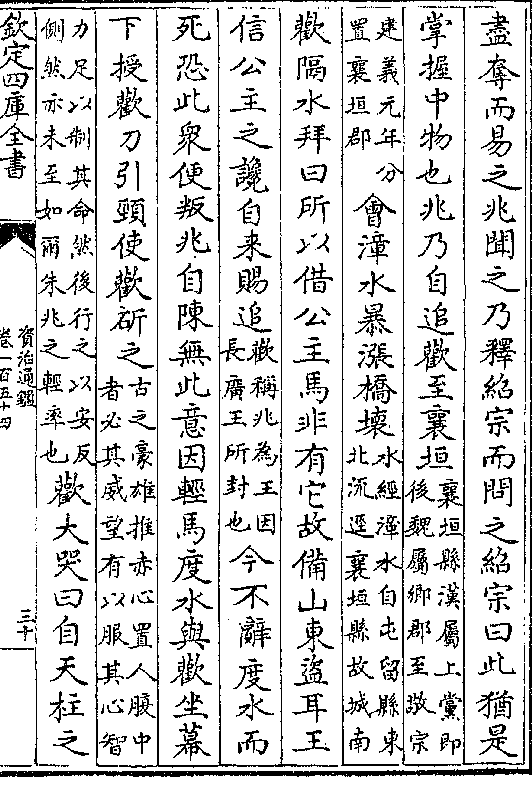 盡奪而易之兆聞之乃釋紹宗而問之紹宗曰此猶是
掌握中物也兆乃自追歡至襄垣襄垣縣漢屬上黨郎後魏屬鄉郡至敬宗
建義元年分置襄垣郡會漳水暴漲橋壞水經漳水自屯留縣東北流逕襄垣縣故城南
歡隔水拜曰所以借公主馬非有它故備山東盜耳王
信公主之讒自来賜追歡稱兆為王因長廣王所封也今不辭度水而
死恐此衆便叛兆自陳無此意因輕馬度水與歡坐幕
下授歡刀引頸使歡斫之古之豪雄推赤心置人腹中者必其威望有以服其心智
力足以制其命然後行之以安反側然亦未至如爾朱兆之輕率也歡大哭曰自天柱之
欽定四庫全書
資治通鑑
卷一百五十四
三十